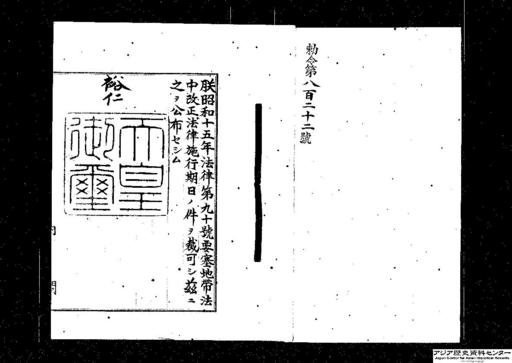 勅令第八百二十二號
朕昭和十五年法律第九十號要塞地帶法
中改正法律施行期日ノ件ヲ裁可シ玆ニ
之ヲ公布セシム
裕仁
天皇
御璽
アジア歴史資料センター
Japan Center for Asian Historical Records